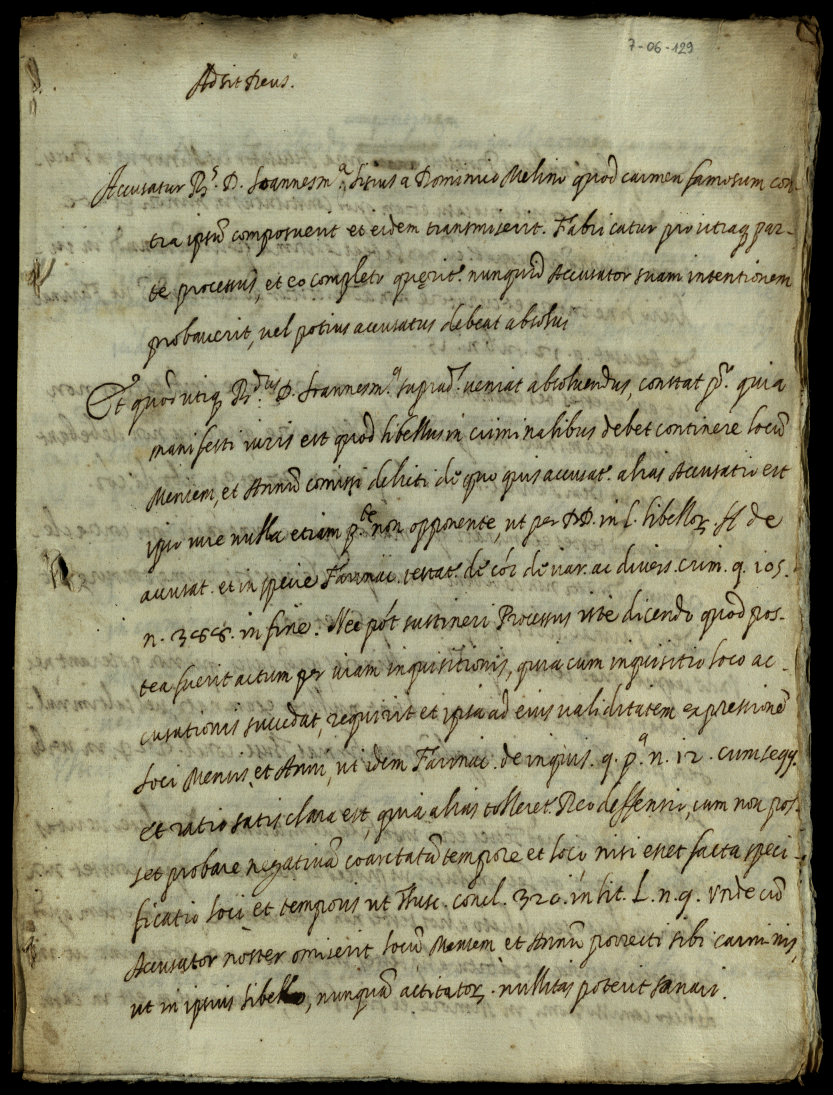 7-06-129
Adsit Deus.
Accusatur R.s D. Joannesm.a Sisius a Dominico Melino quod carmen famosum con-
tra ipsũ composuerit et eidem transmiserit. Fabricatur pro utraq par-
te processus, et eo completo quęrit.r nunquid Accusator suam intentionem
probaverit, vel potius accusatus debeat absolui
Et quod utiq R.dus D. Joannesm.a suprad.s veniat absoluendus, constat p.o quia
manifesti iuris est quod libellus in criminalibus debet continere locũ
Mensem, et Annũ comissi delicti de quo quis accusat.r alias Accusatio est
ipso iure nulla etiam p.te non opponente, ut per DD. in l. libellor. ff de
accusat. et in specie Farinac. testat.r de cói de var. ac divers. crim. q. 105.
n. 388. in fine. Nec pót sustineri Processus iste dicendo quod pos-
tea fuerit actum per viam inquisitionis, quia cum inquisitio loco ac-
cusationis succedat, requirit et ipsa ad eius validitatem expressionẽ
loci Mensis et Anni, ut idem Farinac. de inquis. q. p.a n. 12. cum seqq.
et ratio satis clara est, quia alias tolleret.r Reo deffensio, cum non pos-
set probare negativã coarctatã tempore et loco nisi esset facta speci-
ficatio loci et temporis ut Thusc. concl. 320. in lit. L. n. 9. Vnde cũ
Accusator noster omiserit locũ Mensem et Annũ porrecti sibi carminis,
ut in ipsius libello, nunquã actitator. nullitas poterit sanari.